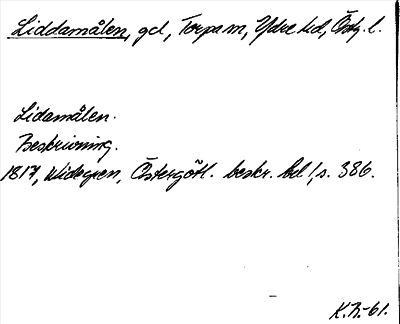 Liddamålen, gd, Torpa sn, Ydre hd, Östg. l.
Lidamålen.
Beskrivning.
1817, Widegren, Östergötl. beskr. Bd 1, s. 386.
K.R.-61.